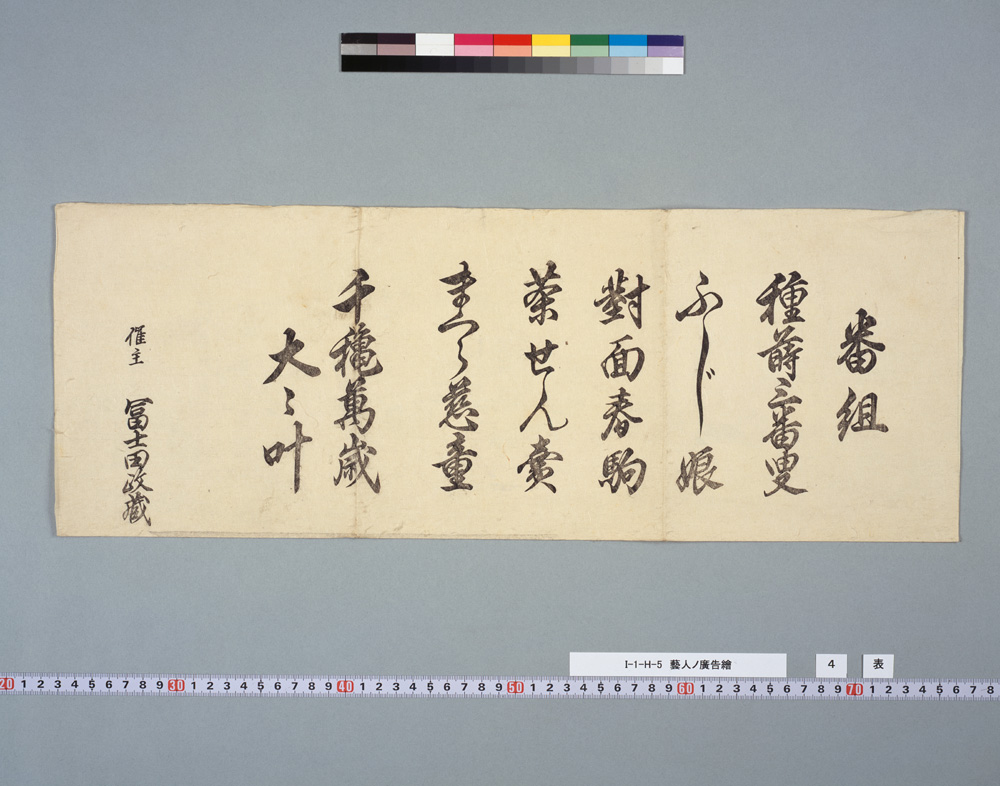 番組
種蒔三番叟
ふじ娘
對面春駒
茶せん賣
まくら慈童
千穐萬歳
大々叶
催主 冨士田政蔵
I-1-H-5 藝人ノ廣告繪
4
表
20 1 2 3 4 5 6 7 8 9 30 1 2 3 4 5 6 7 8 9 40 1 2 3 4 5 6 7 8 9 50 1 2 3 4 5 6 7 8 9 60 1 2 3 4 5 6 7 8 9 70 1 2 3 4 5 6 7 8